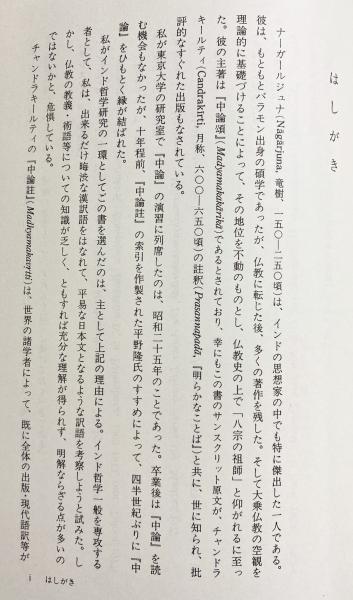 はしがき
ナーガールジュナ(Nāgārjuna, 竜樹、一五〇―二五〇頃)は、インドの思想家の中でも特に傑出した一人である。
彼は、もともとバラモン出身の碩学であったが、仏教に転じた後、多くの著作を残した。そして大乗仏教の空観を
理論的に基礎づけることによって、その地位を不動のものとし、仏教史の上で「八宗の祖師」と仰がれるに至っ
た。彼の主著は『中論頌』(Madyamakakārikā)であるとされており、幸にもこの書のサンスクリット原文が、チャンドラ
キールティ(Candrakīrti, 月称、六〇〇―六五〇頃)の註釈(Prasannapadā,『明らかなことば』)と共に、世に知られ、批
評的なすぐれた出版もなされている。
私が東京大学の研究室で『中論』の演習に列席したのは、昭和二十五年のことであった。卒業後は『中論』を読
む機会もなかったが、十年程前、『中論註』の索引を作製された平野隆氏のすすめによって、四半世紀ぶりに『中
論』をひもとく縁が結ばれた。
私がインド哲学研究の一環としてこの書を選んだのは、主として上記の理由による。インド哲学一般を専攻する
者として、私は、出来るだけ晦渋な漢訳語をはなれて、平易な日本文となるような訳語を考察しようと試みた。し
かし、仏教の教義・術語等についての知識が乏しく、ともすれば充分な理解が得られず、明解ならざる点が多いの
ではないかと、危惧している。
チャンドラキールティの『中論註』(Madhyamakavṛtti)は、世界の諸学者によって、既に全体の出版・現代語訳等が
はしがき
i